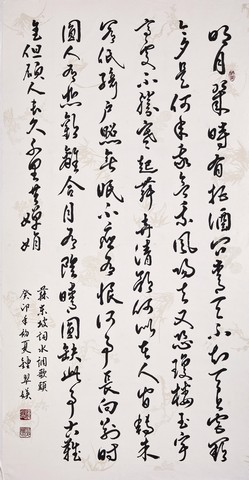 明月幾時有把酒問青天不知天上宮闕
今夕是何年我欲乘風歸去又恐瓊樓玉宇
高處不勝寒起舞弄清影何似在人間轉朱
閣低綺戶照無眠不應有恨何事長向別時
圓人有悲歡離合月有陰晴圓缺此事古難
全但願人長久千里共嬋娟
蘇東坡詞水調歌頭
癸卯年初夏